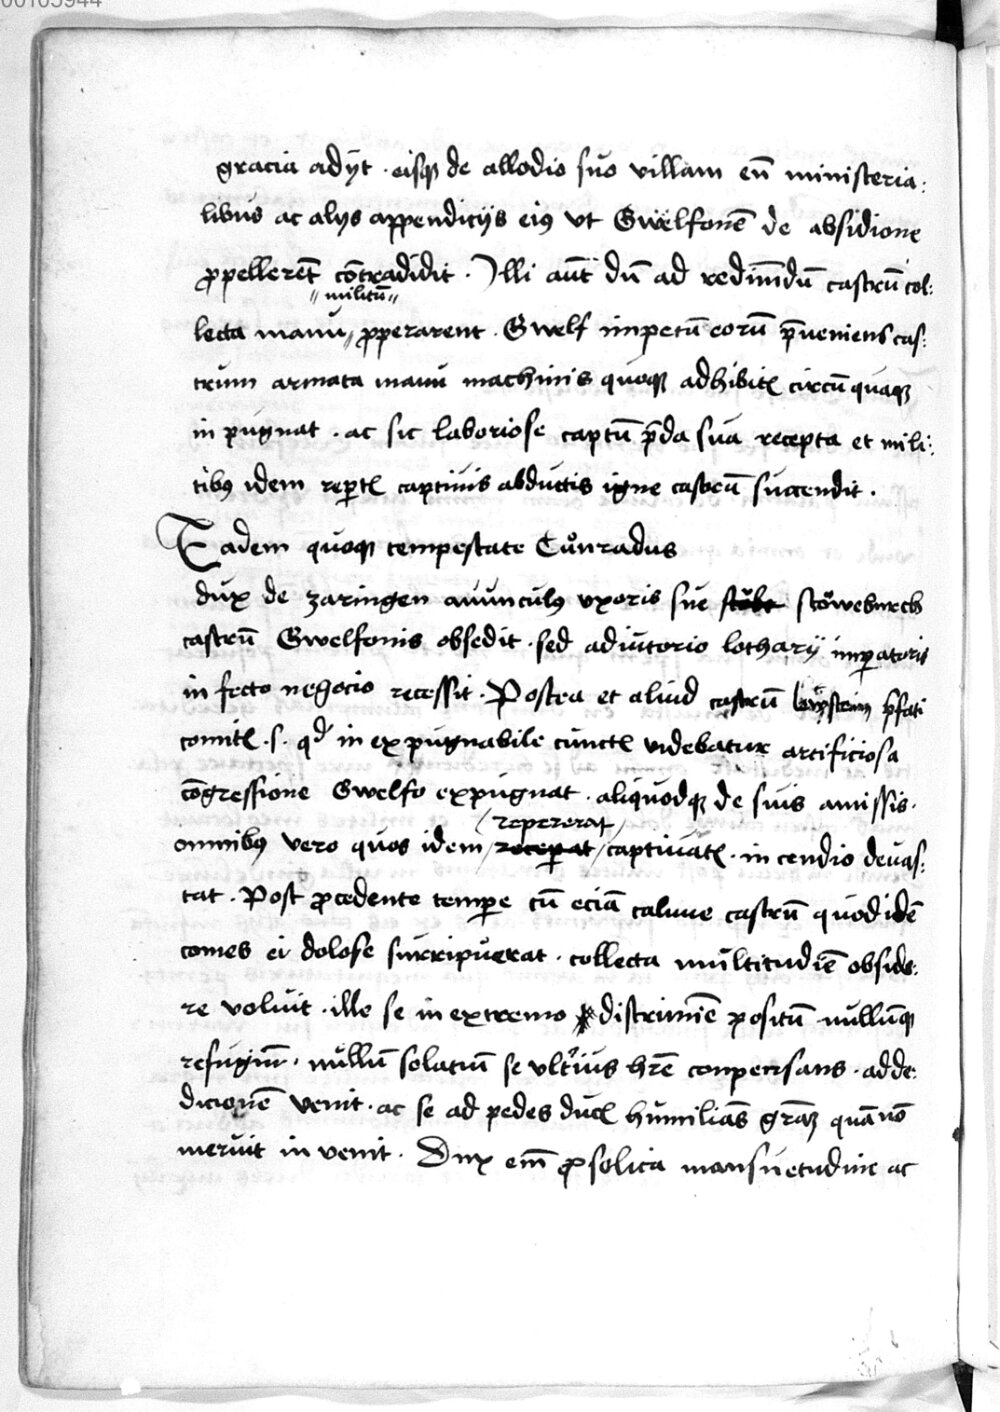 00105944
gracia adijt · eisque de allodio suo villam cū ministeria:
libus ac alijs appendicijs eius vt Gwelfonē de absidione
propellerēt cōtradidit · Illi aūt dū ad redimēdū castrū col:
militū
lecta manu properarent · Gwelf impetū eorū pͤueniens cas:
trum armata manu machinis quoque adhibitꝭ circū quaque
in pugnat · ac sic laboriose captū pͤda sua recepta et mili:
tibus idem reptꝭ captiuis abductis igne castrū succendit ·
Eadem quoque tempestate Cůnradus
dux de zaringen auunculus vxoris sue stöweburch
castrū Gwelfonis obsedit · sed adiutorio lotharij imperatoris
in fecto negocio recessit · Postea et aliud castrū pͤfati
comitꝭ · s · qd in expugnabile cunctꝭ videbatur artificiosa
cōgressione Gwelfo expugnat · aliquodque de suis amissis ·
repererat
omnibus vero quos idem receperat captiuatꝭ · in cendio deuas:
tat · Post procedente tempore cū eciā caluue castrū quod idē
comes ei dolose surripuerat · collecta multitudīe obside:
re voluit · ille se in extremo discrimīe positū nullūque
refugiū · nullū solatiū se vlterius hrē conpensans · ad de:
dicionē venit · ac se ad pedes ducꝭ humiliās grāꝫ quā nō
meruit in venit · Dux em̄ pro solita mansuetudine ac